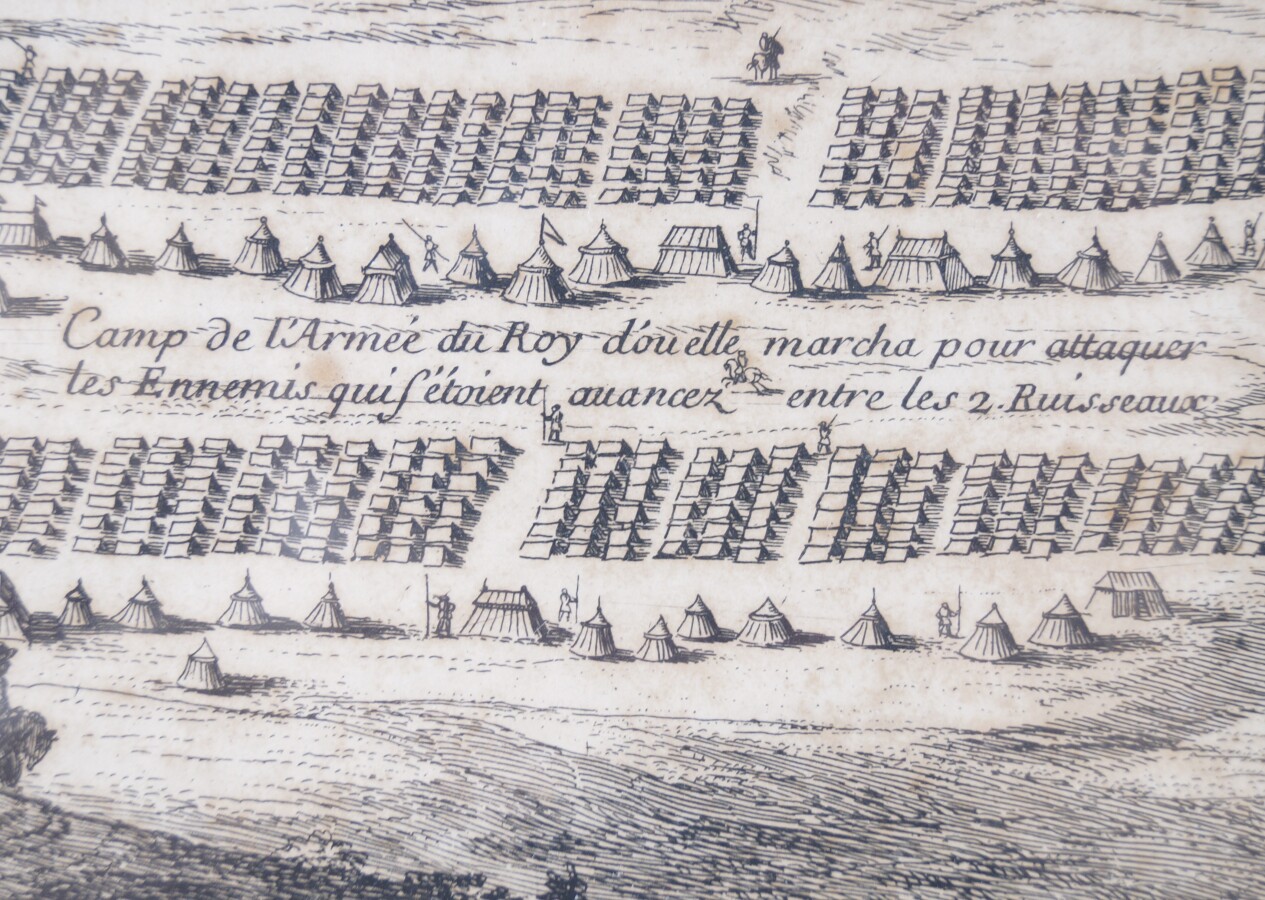 Camp de l'Armeé du Roy d'óu elle marcha pour attaquer
les Ennemis qui ſ'étoient auancez entre les 2. Ruisseaux.